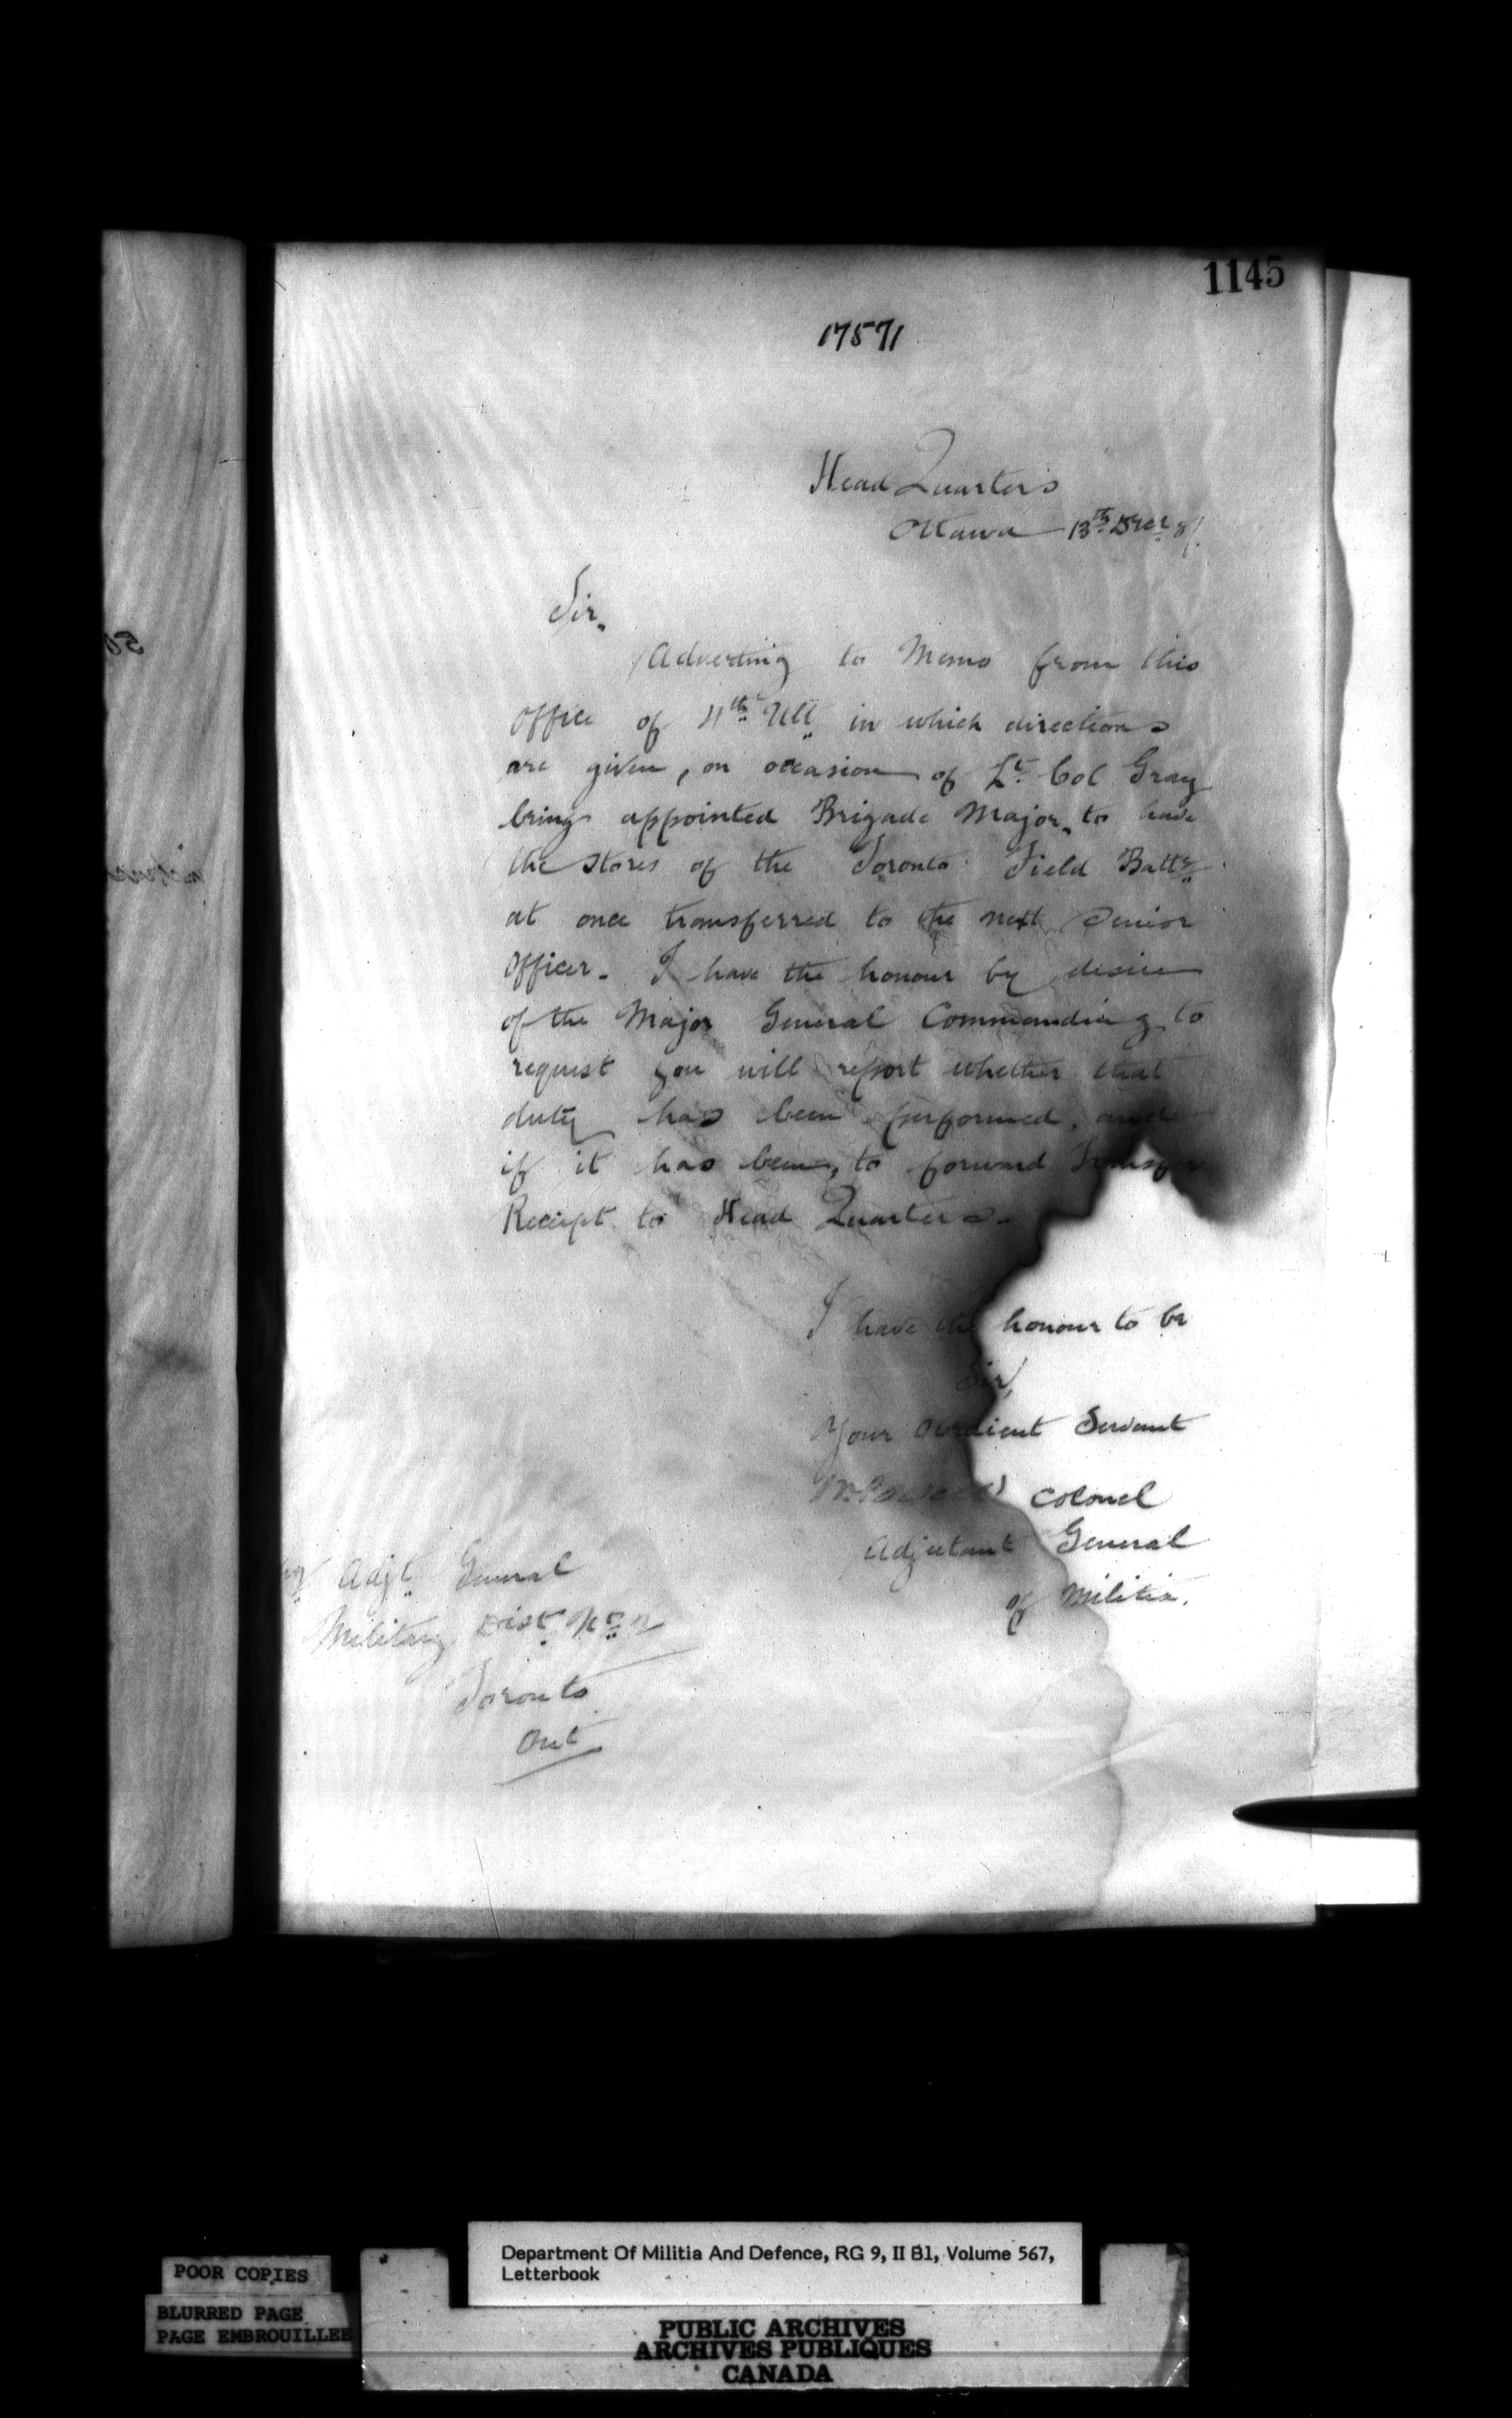 1145
17571
Head Quarters
Ottawa 13th Decr 81.
Sir,
Adverting to Memo from this
Office of 4th Ult in which directions
are given, on occasion of Lt. Col Gray
being appointed Brigade Major, to have
the Stores of the Toronto Field Batty
at once transferred to the next Senior
Officer. I have the honour by desire
of the Major General Commanding to
request you will report whether that
duty has been performed, and
if it has been, to forward Transfer
Receipt to Head Quarters.
I have the honour to be
Sir,
Your Obedient Servant
Colonel
Adjutant General
of Militia.
Adjt. General
Military Dist. No. 2
Toronto
Ont
Department Of Militia And Defence, RG 9, II B1, Volume 567,
Letterbook
POOR COPIES
BLURRED PAGE
PAGE EMBROUILLEE
PUBLIC ARCHIVES
ARCHIVES PUBLIQUES
CANADA